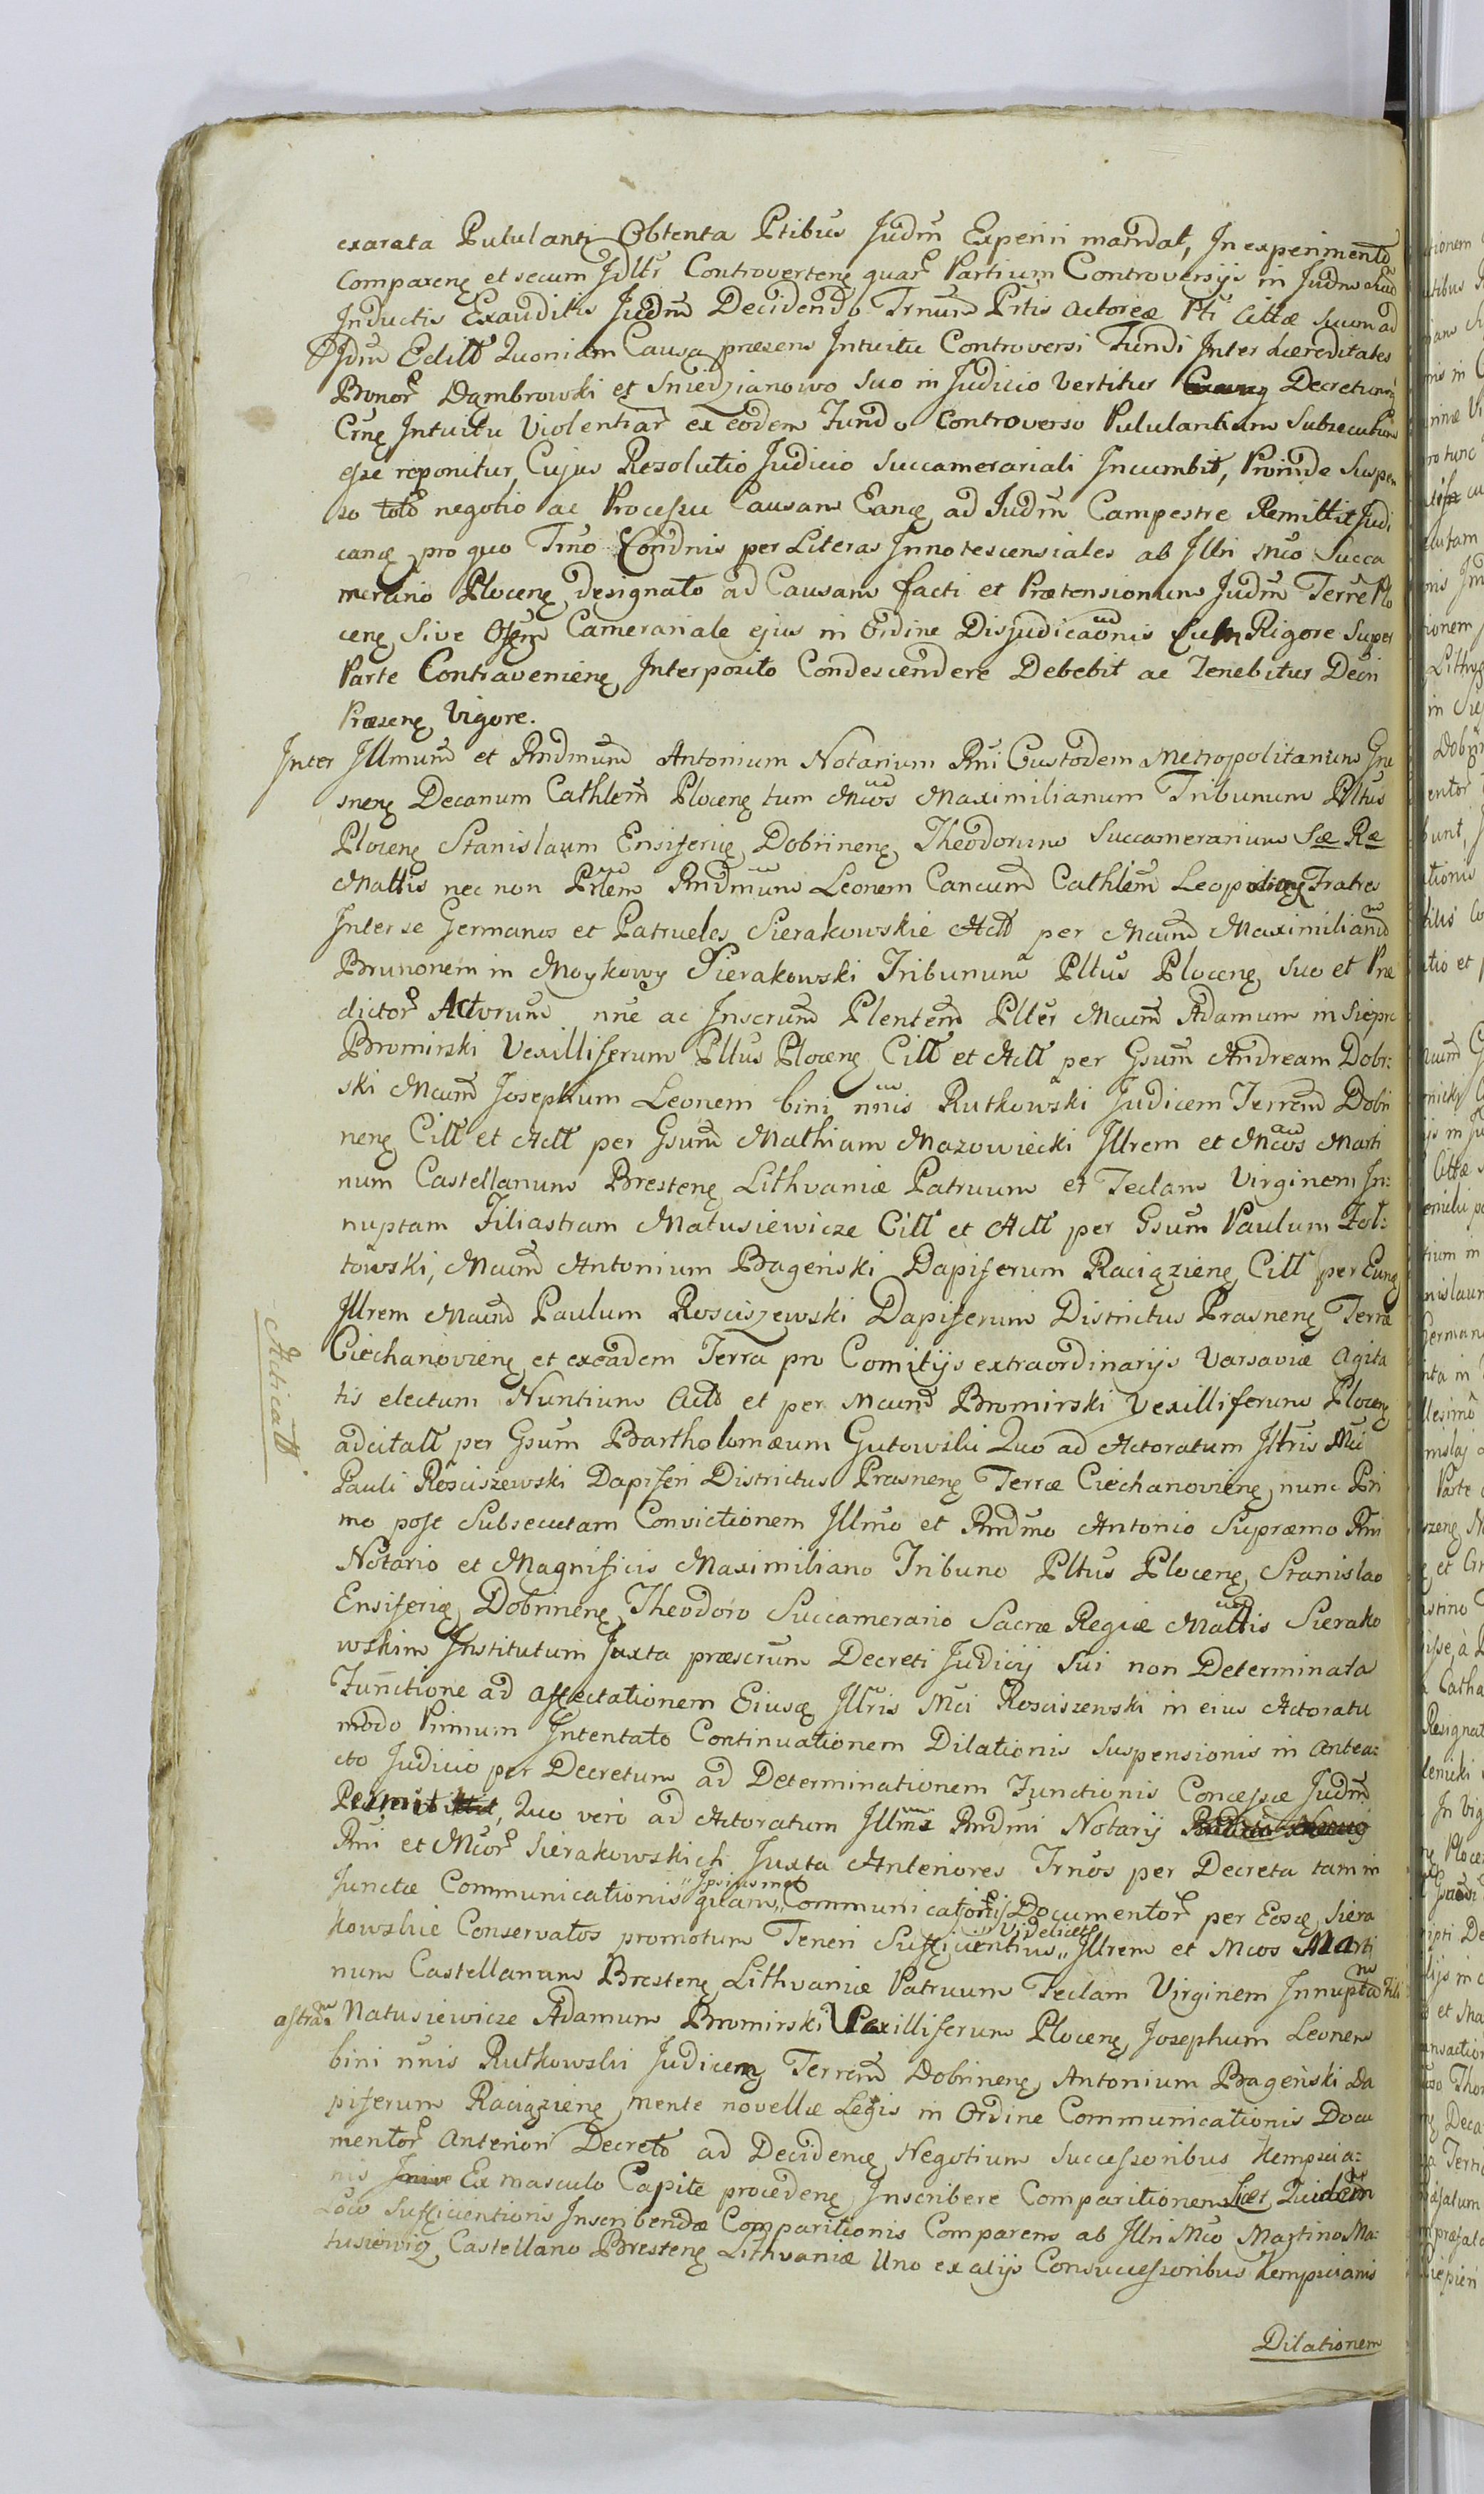 exarata Pululanti Obtenta Ptibus Judm Experiri mandat, In experimento
Comparene et secum Idlłr Controvertene quar Partium Controversijs in Judm
Inductis Exauditis Judm Decidendo Trnum Prtis Actoreæ Pti Cittæ Suum ad
Idm Editt Quoniam Causa præsens Intuitu Controversi Fundi Inter Hæreditates
Bonor Dąmbrowski et Sniedzianowo Suo in Judicio Vertitur Decretum
Crne Intuitu Violentiar ex eodem Fundo Controverso Pululantium Subsecutum
esse reponitur, Cujus Resolutio Judicio Succamerariali Incumbit, Proinde Suspen
so toto negotio ac Processu Causam Eanq ad Judm Campestre Remittit Judi
canq pro quo Trno Condnis per Literas Innotescensiales ab Illri Mco Succa
merario Plocenę designato ad Causam facti et Prætensionum Judm Terre Plo
cenę Sive Offm Camerariale ejus in Ordine Disjudicaonis Cum Rigore Super
Parte Contravenienę Interposito Condescendere Debebit ac Tenebitur Decri
Præsenę Vigore.
Inter Illmum et Rndmum Antonium Notarium Rni Custodem Metropolitanum Gne
snenę Decanum Cathlem Plocenę tum Mcos Maximilianum Tribunum Pltus
Plocenę Stanislaum Ensiferię Dobrinenę Theodorum Succamerarium Sæ Ræ
Mattis nec non Prlem Rndmum Leonem Cancum Cathlem Leopolienę Fratres
Inter se Germanos et Patrueles Sierakowskie Actt per Mcum Maximilianum
Brunonem in Moykowy Sierakowski Tribunum Pltus Plocenę Suo et Præ
dictor Actorum nne ac Inscrum Plentem Plter Mcum Adamum in Siepre
Bromirski Vexilliferum Pltus Plocenę Citt et Actt per Gsum Andream Dobr:
ski Mcum Josephum Leonem bini nnis Rutkowski Judicem Terrem Dobri
nenę Citt et Actt per Gsum Mathiam Mazowiecki Illrem et Mcos Marti
num Castellanum Brestenę Lithvaniæ Patruum et Teclam Virginem In:
nuptam Filiastram Matusiewicze Citt et Actt per Gsum Paulum Zol:
towski, Mcum Antonium Bagenski Dapiferum Raciązienę Citt per Eunq
Illrem Mcum Paulum Rosciszewski Dapiferum Districtus Prasnenę Terræ
Ciechanovienę et ex eadem Terra pro Comitijs extraordinarijs Varsaviæ Agita
tis electum Nuntium Actt et per Mcum Bromirski Vexilliferum Plocenę
adcitatt per Gsum Bartholomæum Gutowski Quo ad Actoratum Illris Mci
Pauli Rosciszewski Dapiferi Districtus Prasnenę Terræ Ciechanovienę nunc Pri
mo post Subsecutam Convictionem Illmo et Rndmo Antonio Supræmo Rni
Notario et Magnificis Maximiliano Tribuno Pltus Plocenę Stanislao
Ensiferię Dobrinenę Theodoro Succamerario Sacræ Regiæ Mattis Sierako
wskim Institutum Juxta præscrum Decreti Judicij Sui non Determinata
Functione ad affectationem Eiusq Illris Mci Rosciszewski in eius Actoratu
modo Primum Intentato Continuationem Dilationis Suspensionis in antea:
cto Judicio per Decretum ad Determinationem Functionis Concessæ Judm
Permittit, Quo verò ad Actoratum Illmi Rndmi Notarij
Rni et Mcor Sierakowskich Juxta Anteriores Trnos per Decreta tam in
Junctæ Communicationis quam „Ipsiusmet„ Communicationis Documentor per Eosq Siera
kowskie Conservatos promotum Teneri Sufficientius „Videlicet„ Illrem et Mcos Marti
num Castellanum Brestenę Lithvaniæ Patruum Teclam Virginem Innuptam Fili
astram Matusiewicze Adamum Bromirski Vexilliferum Plocenę Josephum Leonem
bini nnis Rutkowski Judicem Terrem Dobrinenę Antonium Bagenski Da
piferum Raciązienę mente novellæ Legis in Ordine Communicationis Docu
mentor Anteriori Decreto ad Decidenę Negotium Successoribus Kempscia:
nis Ex masculo Capite procedenę Inscribere Comparitionem Licet Quidem
Loco Sufficientioris Inscribendæ Comparitionis Comparens ab Illri Mco Martino Ma:
tusiewicz Castellano Brestenę Lithvaniæ Uno ex alijs Consuccessoribus Kempscianis
Dilationem
Acticatt.